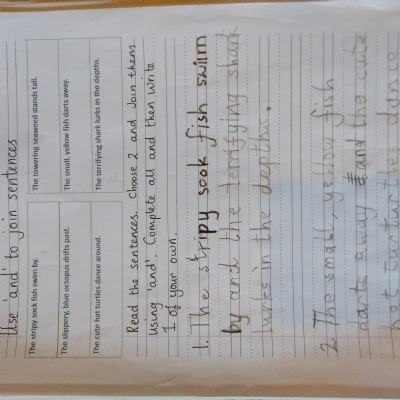 Use 'and' to join sentences
The stripy sock fish swim by.
The towering seaweed stands tall.
The slippery, blue octopus drifts past.
The small, yellow fish darts away.
The cute hat turtles dance around.
The terrifying shark lurks in the depths.
Read the sentences. Choose 2 and Join them
using 'and'. Complete all and then write
1 of your own.
1. The stripy sook fish swim
by and the terrifying shark
lurks in the depths.
2. The small, yellow fish
darts away and the cute
hat turtle dance